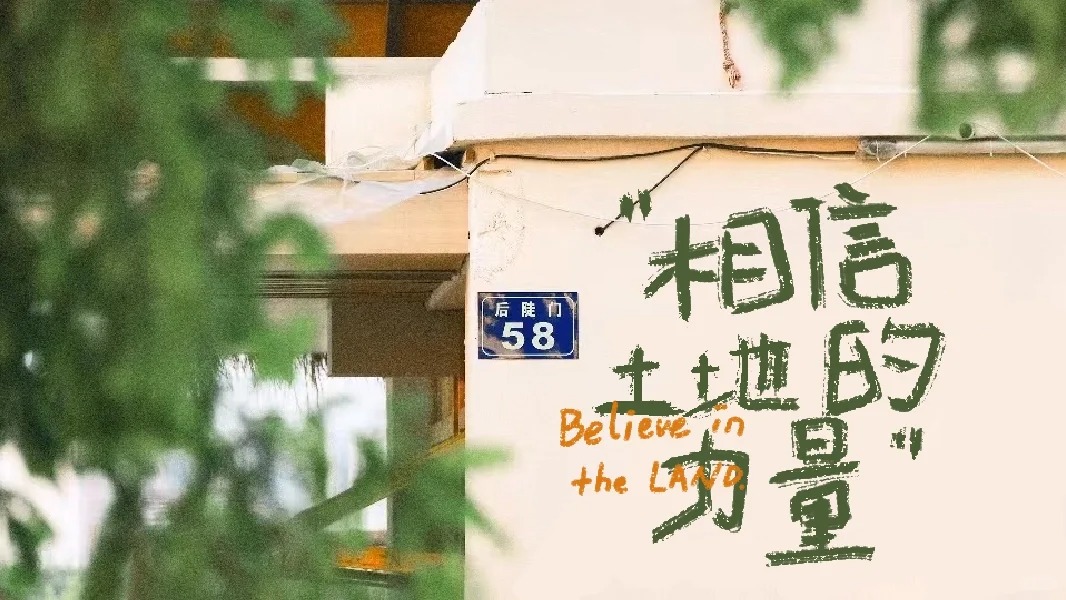 后陡门
58
"相信
土地的
力量"
Believe in
the LAND